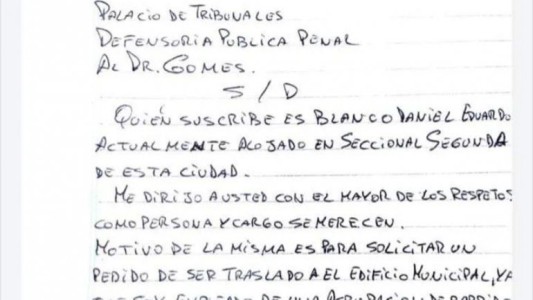 PALACIO DE TRIBUNALES
DEFENSORIA PUBLICA PENAL
AL DR. GOMES.
S / D
QUIEN SUSCRIBE ES BLANCO DANIEL EDUARDO
ACTUALMENTE ALOJADO EN SECCIONAL SEGUNDA
DE ESTA CIUDAD.
ME DIRIJO A USTED CON EL MAYOR DE LOS RESPETOS
COMO PERSONA Y CARGO SE MERECEN.
MOTIVO DE LA MISMA ES PARA SOLICITAR UN
PEDIDO DE SER TRASLADO A EL EDIFICIO MUNICIPAL, YA